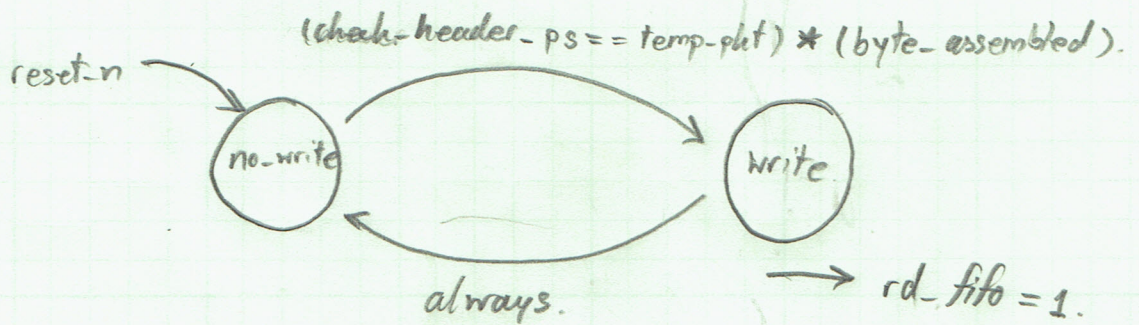 (check_header_ps == temp_pkt) * (byte_assembled).
reset_n
no_write
write
always.
rd_fifo = 1.